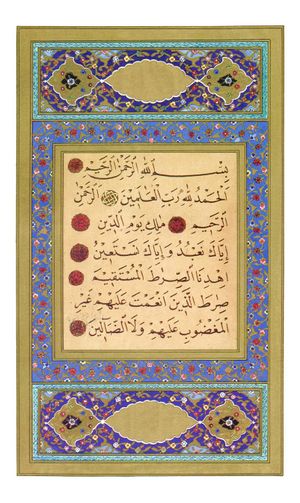 بِسْمِ اللهِ الرَّحْمٰنِ الرَّحِيمِ
اَلْحَمْدُ لِلّٰهِ رَبِّ الْعَالَمِينَ الرَّحْمٰنِ
الرَّحِيمِ مٰلِكِ يَوْمِ الدِّينِ
اِيَّاكَ نَعْبُدُ وَاِيَّاكَ نَسْتَعِينُ
اِهْدِنَا الصِّرٰطَ الْمُسْتَقِيمَ
صِرٰطَ الَّذِينَ اَنْعَمْتَ عَلَيْهِمْ غَيْرِ
الْمَغْضُوبِ عَلَيْهِمْ وَلَا الضَّالِّينَ